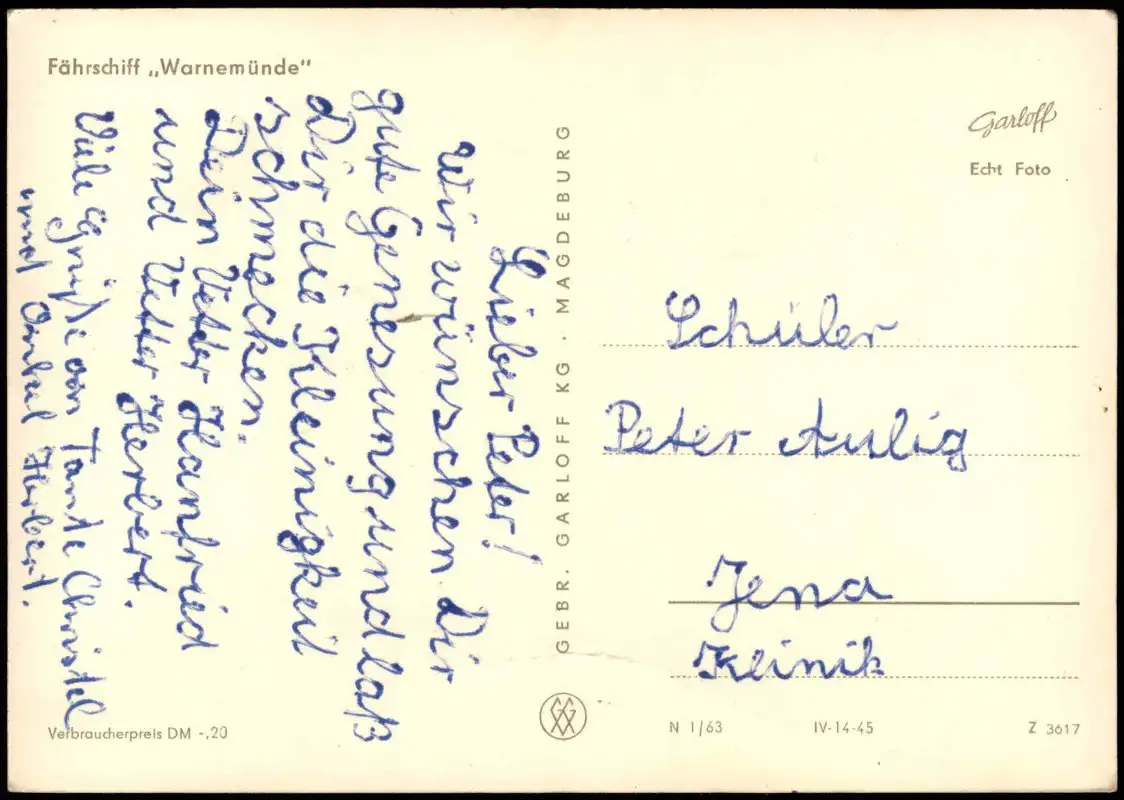 Fährschiff „Warnemünde"
Lieber Peter!
Wir wünschen Dir
gute Genesung und laß
Dir die Kleinigkeit
schmecken.
Dein Vetter Hanfried
und Vetter Herbert.
Viele Grüße von Tante Christel
und Onkel Herbert.
GEBR. GARLOFF KG · MAGDEBURG
Garloff
Echt Foto
Schüler
Peter Aulig
Jena
Klinik
Verbraucherpreis DM -,20
N 1/63 IV-14-45 Z 3617